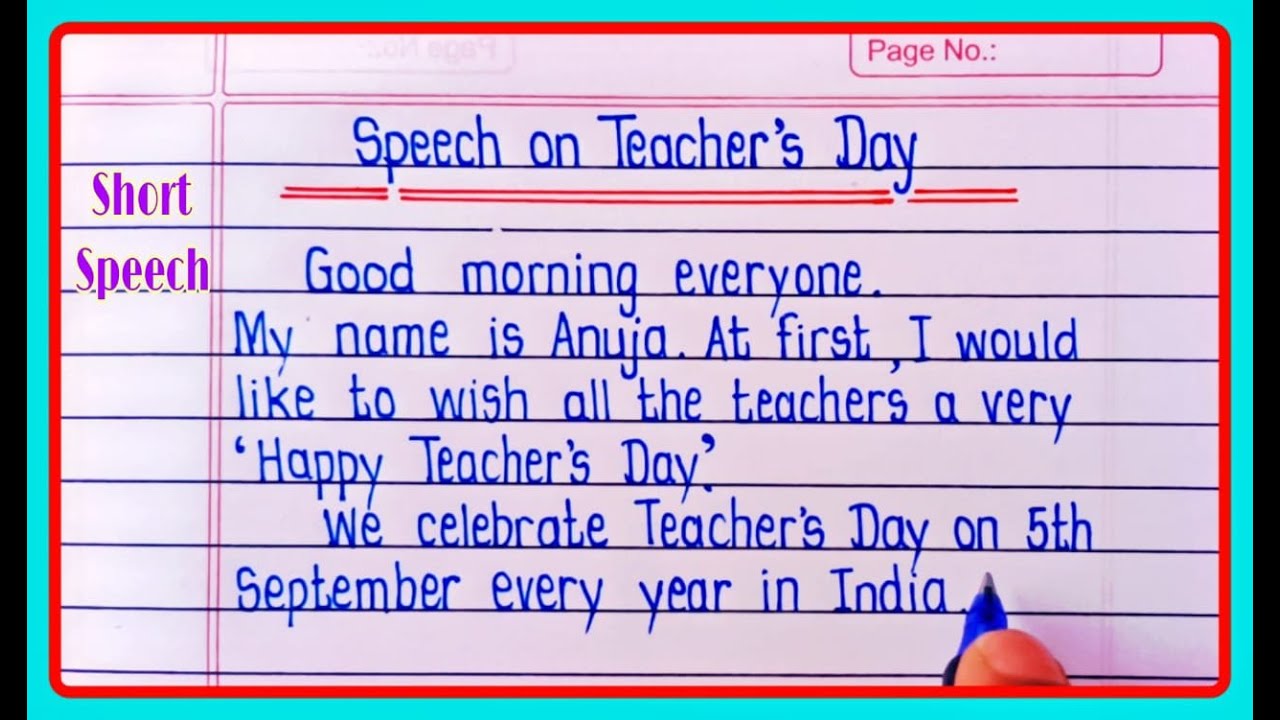 Page No.:
Speech on Teacher's Day
Short
Speech
Good morning everyone.
My name is Anuja. At first, I would
like to wish all the teachers a very
'Happy Teacher's Day.'
We celebrate Teacher's Day on 5th
September every year in India.